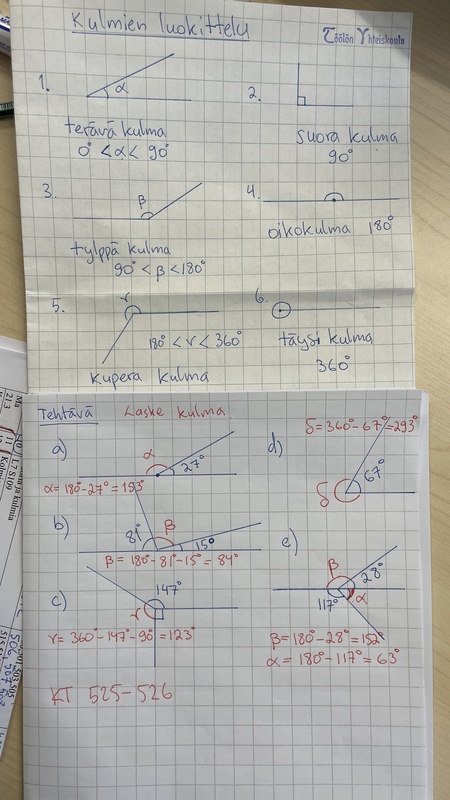 Kulmien luokittelu
Töölön Yhteiskoulu
1.
α
terävä kulma
0° < α < 90°
2.
suora kulma
90°
3.
β
tylppä kulma
90° < β < 180°
4.
oikokulma 180°
5.
γ
180° < γ < 360°
kupera kulma
6.
täysi kulma
360°
Tehtävä Laske kulma
a)
α
27°
α = 180° - 27° = 153°
b)
81°
β
15°
β = 180° - 81° - 15° = 84°
c)
147°
γ
γ = 360° - 147° - 90° = 123°
d)
δ = 360° - 67° = 293°
67°
δ
e)
β
28°
117°
α
β = 180° - 28° = 152°
α = 180° - 117° = 63°
KT 525-526